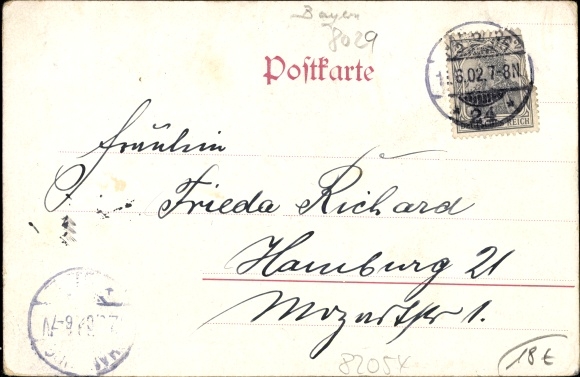 Bayern
8029
Postkarte
1.6.02.7-8N
24
REICH
Fräulein
Frieda Richard
Hamburg 21
Mozartstr 1.
82054
18€